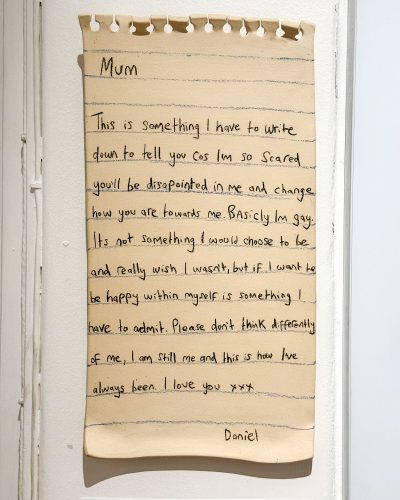 Mum
This is something I have to write
down to tell you cos Im so scared
you'll be disapointed in me and change
how you are towards me. BAsicly Im gay.
Its not something I would choose to be
and really wish I wasn't, but if I want to
be happy within myself is something I
have to admit. Please don't think differently
of me, I am still me and this is how I've
always been. I love you xxx
Daniel